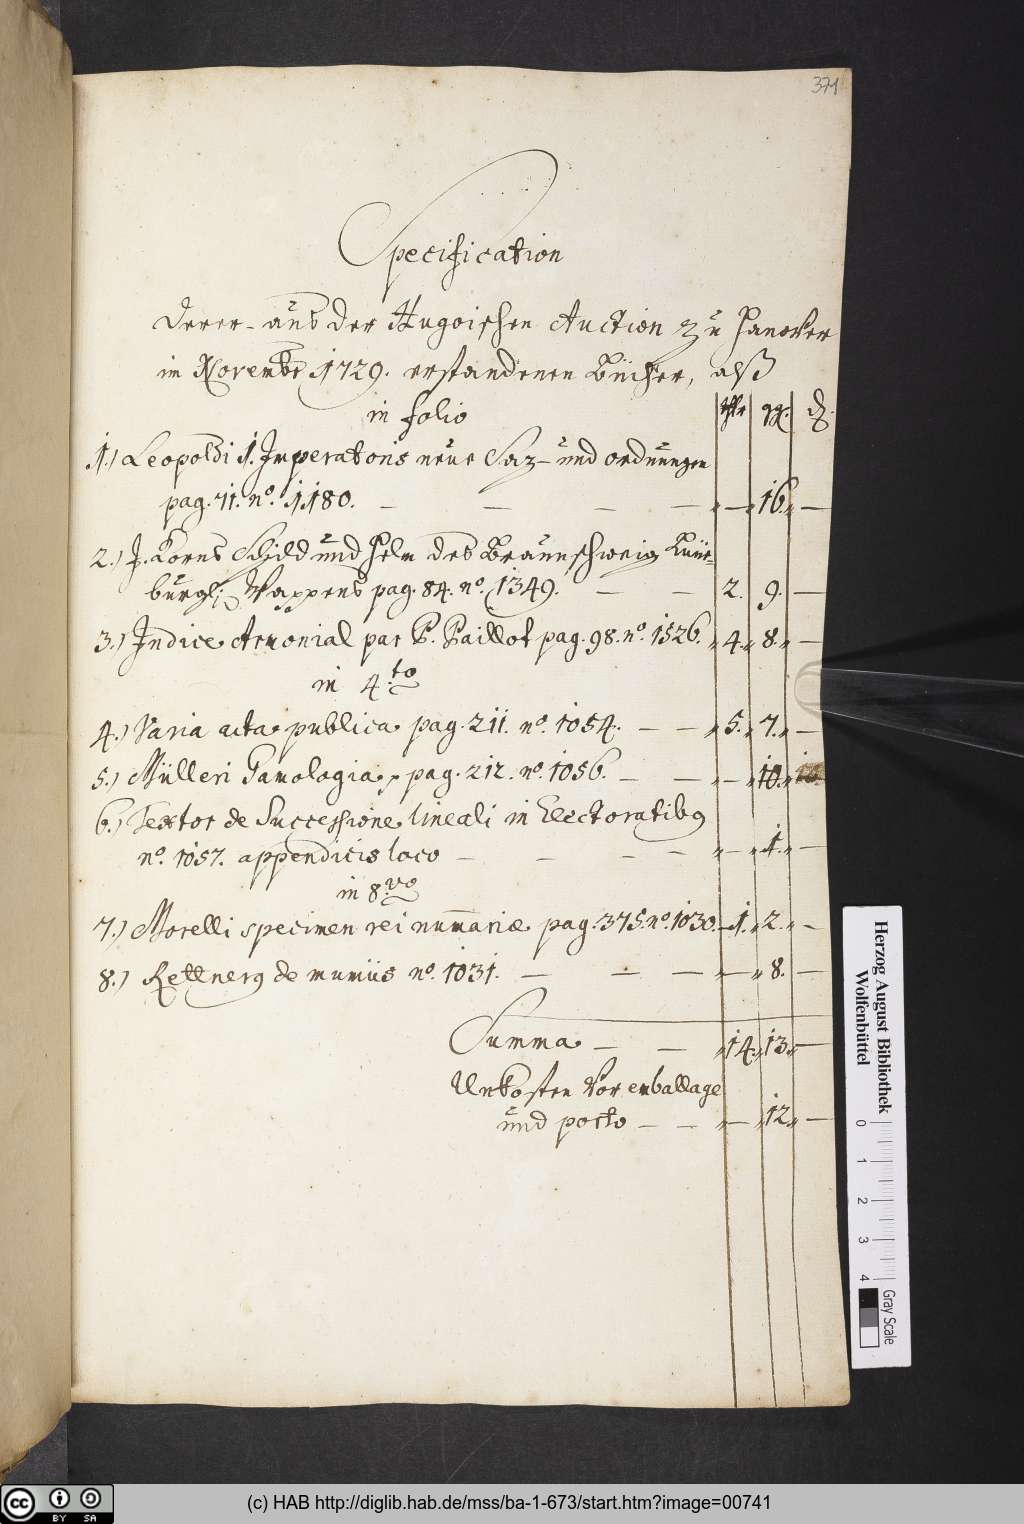 371
Specification
derer - aus der Hugoischen Auction zu Hanover
im Novembr 1729. erstandenen Bücher, alß
in folio
thlr gg. d.
1.) Leopoldi 1. Imperatoris neue Saz - und ordnungen
pag. 71. no. 1180. — — — — „ — „ 16. „ —
2.) J. Korns Schild und Helm des Braunschweig Lüne-
burgl. Wappens pag. 84. no. 1349. — — 2. 9. —
3.) Indice Armorial par P. Paillot pag. 98. no. 1526. „ 4. „ 8. „ —
in 4.to
4.) Varia acta publica pag. 211. no. 1054. — — „ 5. „ 7. „ —
5.) Mülleri Gamologia pag. 212. no. 1056. — — „ — „ 10. „
6.) Textor de Successione lineali in Electoratibg
no. 1057. appendicis loco — — — — „ — „ 1. „ —
in 8.vo
7.) Morelli specimen rei numariæ pag. 375. no. 1030. — 1. „ 2. „ —
8.) Kettnerg de mumiis no. 1031. — — — „ — „ 8. —
Summa — — „ 14. „ 13. „ —
Unkosten vor emballage
und porto — — „ — „ 12. „ —
Herzog August Bibliothek
Wolfenbüttel
0 1 2 3 4
Gray Scale
cc BY SA
(c) HAB http://diglib.hab.de/mss/ba-1-673/start.htm?image=00741